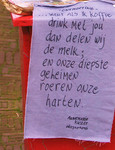 als ik koffie
drink met jou
dan delen wij
de melk;
en onze diepste
geheimen
roeren onze
harten.